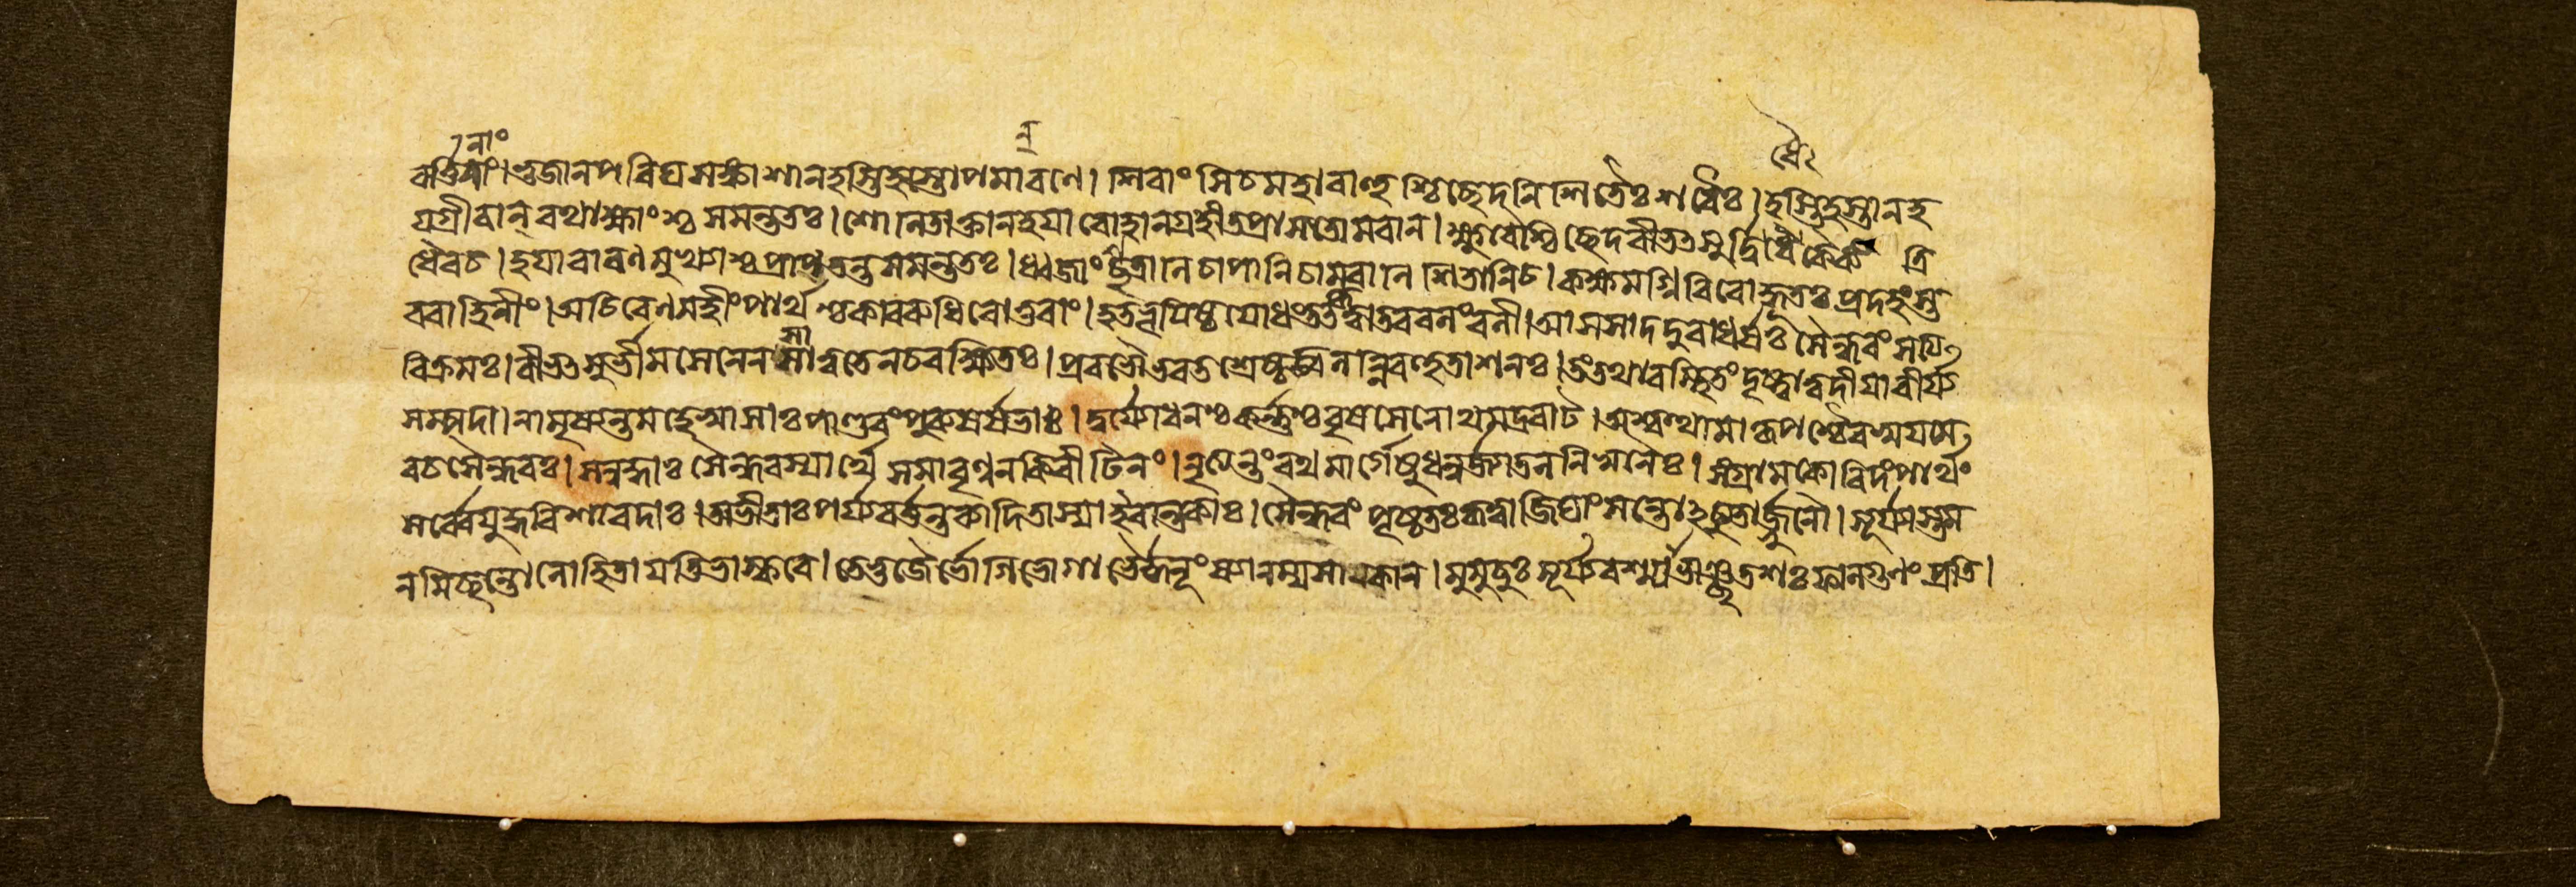 বর্ত্তিনাং। ভুজানপরিঘসঙ্কাশানহস্তিহস্তোপমান্রণে। শিরাংসিচমহাবাহুশ্চিচ্ছেদনিশিতৈঃশরৈঃ। হস্তিহস্তানহ
য়গ্রীবান্রথাক্ষাংশ্চসমন্ততঃ। শোণিতাক্তানহয়ারোহানগৃহীতপ্রাসতোমরান। ক্ষুরৈশ্চিচ্ছেদবীভৎসুর্দ্বিধৈকৈকং ত্রি
ধৈবচ। হয়াবারণমুখ্যাশ্চপ্রাপতন্তসমন্ততঃ। ধ্বজাংছত্রানিচাপানিচামরানিশিরানিচ। কক্ষমগ্নিরিবোদ্ধূতঃপ্রদহংস্ত
ববাহিনীং। অচিরেণমহীংপার্থশ্চকাররুধিরোত্তরাং। হতভূয়িষ্ঠযোধংতৎকৃত্বাতববলংবলী। আসসাদদুরাধর্ষঃসৈন্ধবংসত্য
বিক্রমঃ। বীভৎসুর্ভীমসেনেনসাত্বতেনচরক্ষিতঃ। প্রবভৌভরতশ্রেষ্ঠজ্বলন্নিবহুতাশনঃ। তংতথাবস্থিতংদৃষ্ট্বাত্বদীয়াবীর্য্য
সম্পদা। নামৃষ্যন্তমহেষ্বাসাঃপাণ্ডবংপুরুষর্ষভাঃ। দুর্য্যোধনশ্চকর্ন্নশ্চবৃষসেনোথমদ্ররাট। অশ্বত্থামাকৃপশ্চৈবস্বয়মে
বচসৈন্ধবঃ। সংরব্ধাঃসৈন্ধবস্যার্থেসমাবৃণ্বনকিরীটিনং। নৃত্যন্তংরথমার্গেষুধনুর্জ্যাতলনিস্বনৈঃ। সংগ্রামকোবিদংপার্থং
সর্ব্বেযুদ্ধবিশারদাঃ। অভীতাঃপর্য্যবর্ত্তন্তব্যাদিতাস্যমিবান্তকং। সৈন্ধবংপৃষ্ঠতঃকৃত্বাজিঘাংসন্তোঽচ্যুতার্জ্জুনৌ। সূর্য্যাস্তম
নমিচ্ছন্তোলোহিতায়তিভাস্করে। তেভুজৈর্ভোগিভোগাভৈর্ধনূংষ্যানম্যসায়কান। মুমুচুঃসূর্য্যরশ্ম্যাভাঞ্ছতশঃফালগুণংপ্রতি।